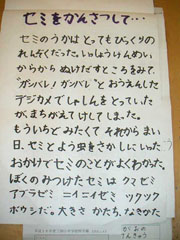 セミをかんさつして…
セミのうかは とっても びっくりの
れんぞくだった。いっしょうけんめい
からから ぬけだすところをみて、
“ガンバレ! ガンバレ” とおうえんした
デジカメで しゃしんをとっていた
が、まちがえて けして しまった。
もういちど みたくて それから まい
日、セミと よう虫をさがしにいった
おかげで セミのことが よくわかった。
ぼくの みつけた セミは クマゼミ
アブラゼミ ニイニイゼミ ツクツク
ボウシだ。大きさ かたち、なきかた